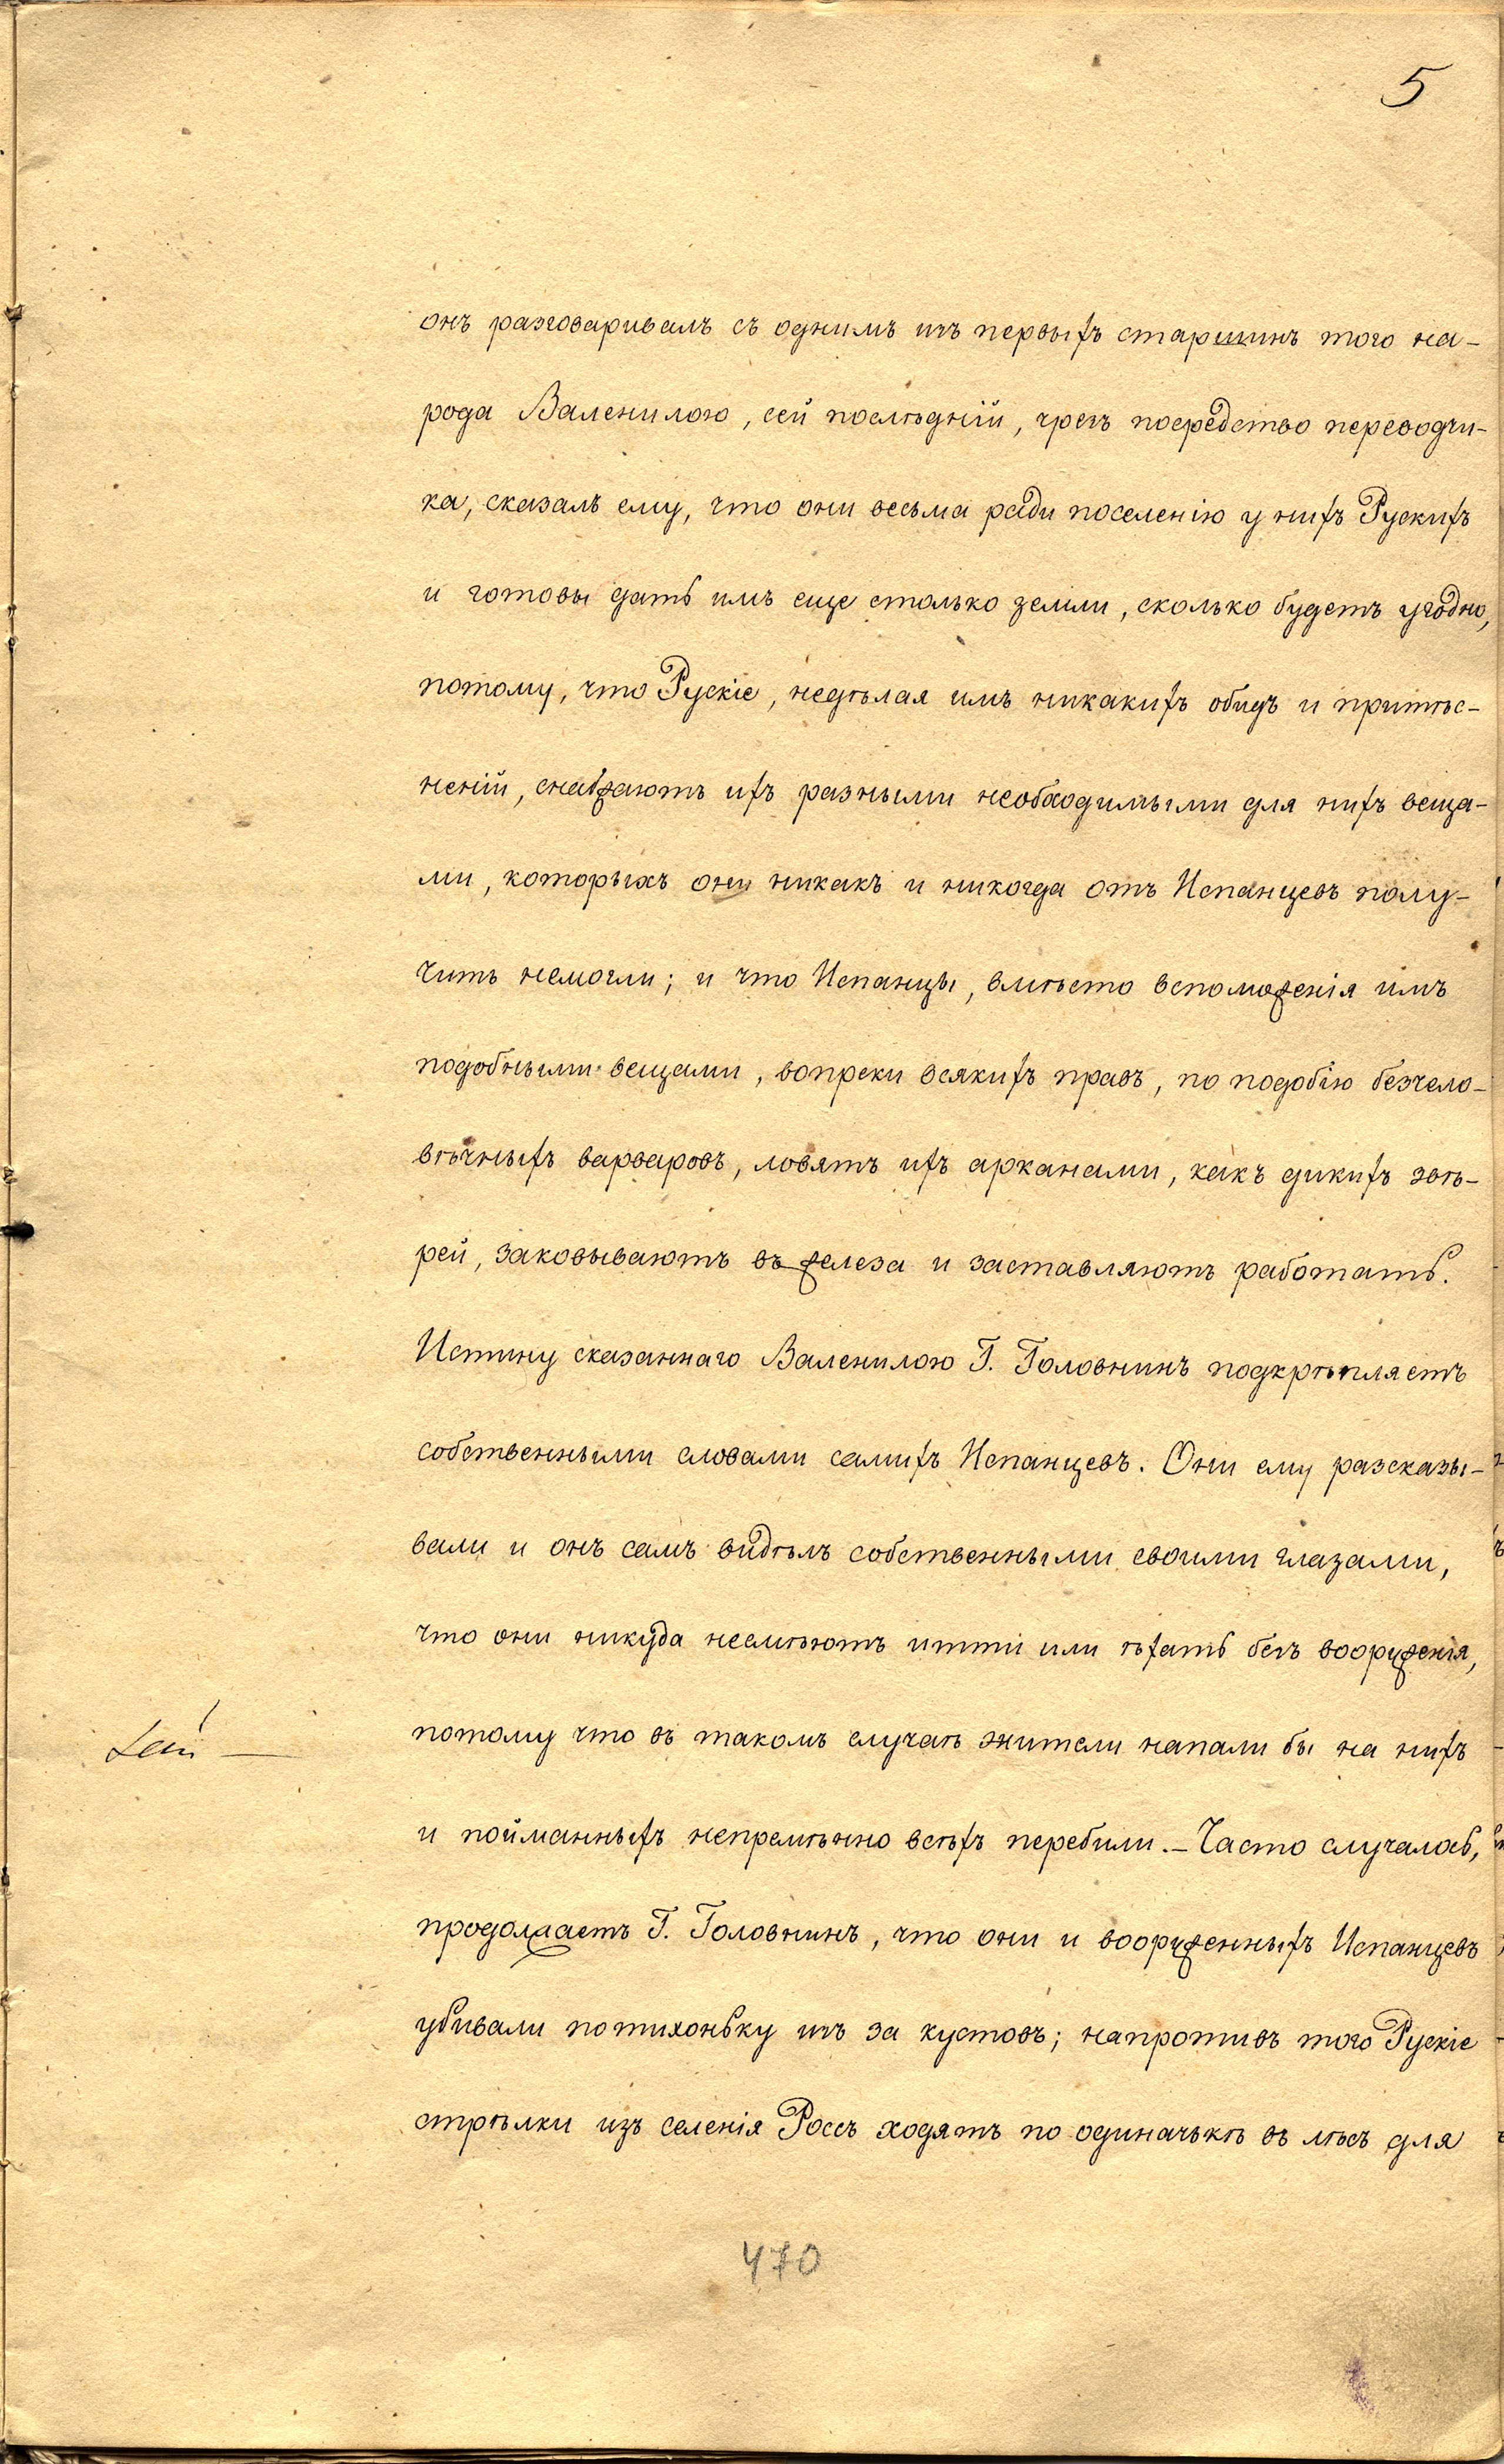 5
онъ разговаривалъ съ однимъ изъ первыхъ старшинъ того на-
рода Валенилою, сей послѣдній, чрезъ посредство переводчи-
ка, сказалъ ему, что они весьма ради поселенію у нихъ Рускихъ
и готовы дать имъ еще столько земли, сколько будетъ угодно,
потому, что Рускіе, недѣлая имъ никакихъ обидъ и притѣс-
неній, снабжаютъ ихъ разными необходимыми для нихъ веща-
ми, которыхъ они никакъ и никогда отъ Испанцевъ полу-
чить немогли; и что Испанцы, вмѣсто вспоможенія имъ
подобными вещами, вопреки всякихъ правъ, по подобію безчело-
вѣчныхъ варваровъ, ловятъ ихъ арканами, какъ дикихъ звѣ-
рей, заковываютъ въ железа и заставляютъ работать.
Истину сказаннаго Валенилою Г. Головнинъ подкрѣпляетъ
собственными словами самихъ Испанцевъ. Они ему разсказы-
вали и онъ самъ видѣлъ собственными своими глазами,
что они никуда несмѣютъ итти или ѣхать безъ вооруженія,
потому что въ такомъ случаѣ жители напали бы на нихъ
и пойманныхъ непремѣнно всѣхъ перебили. – Часто случалось,
продолжаетъ Г. Головнинъ, что они и вооруженныхъ Испанцевъ
убивали потихоньку изъ за кустовъ; напротивъ того Рускіе
стрѣлки изъ селенія Россъ ходятъ по одиначькѣ въ лѣсъ для
470